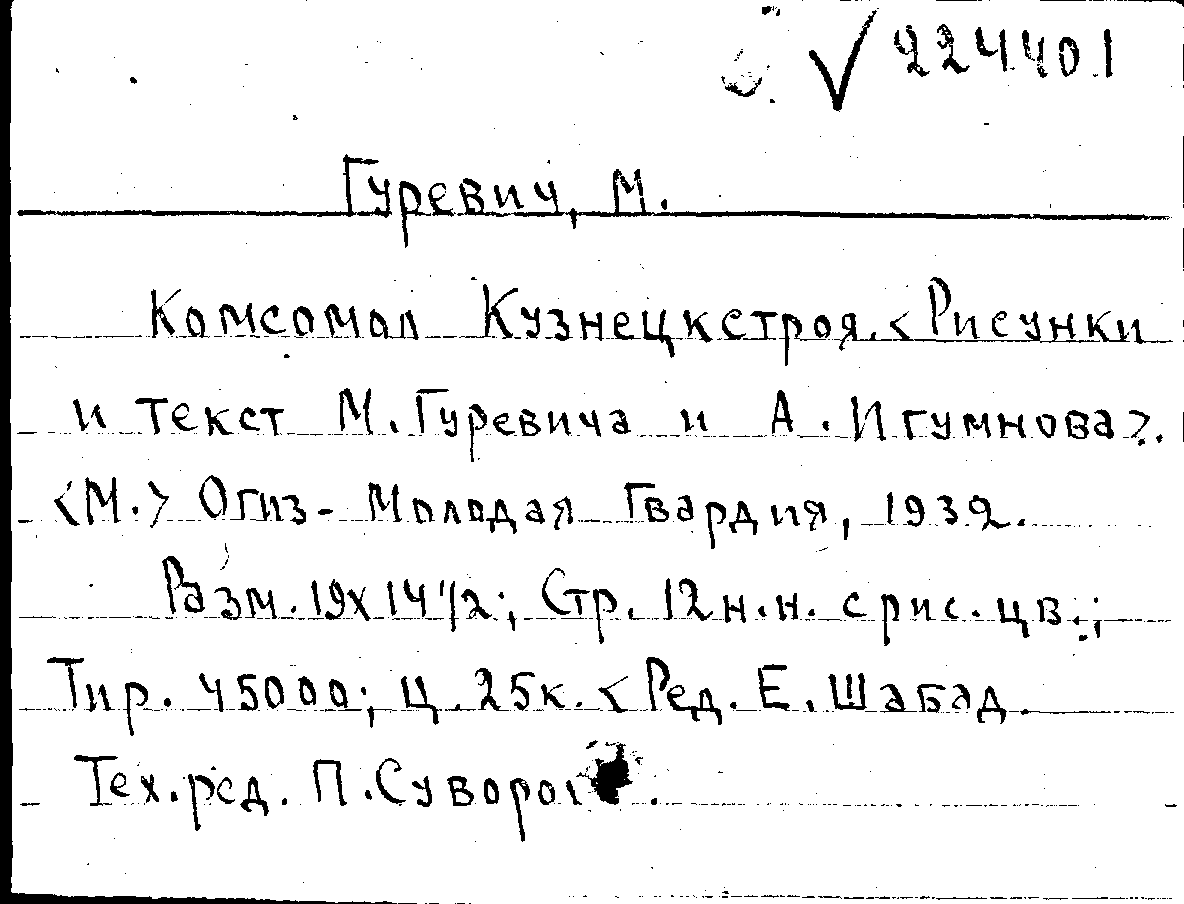 √ 224401
Гуревич, М.
Комсомол Кузнецкстроя. <Рисунки
и текст М. Гуревича и А. Игумнова>.
<М.> Огиз - Молодая Гвардия, 1932.
Разм. 19х14 1/2; Стр. 12 н.н. с рис. цв.;
Тир. 45000; Ц. 25к. <Ред. Е. Шабад.
Тех. ред. П.